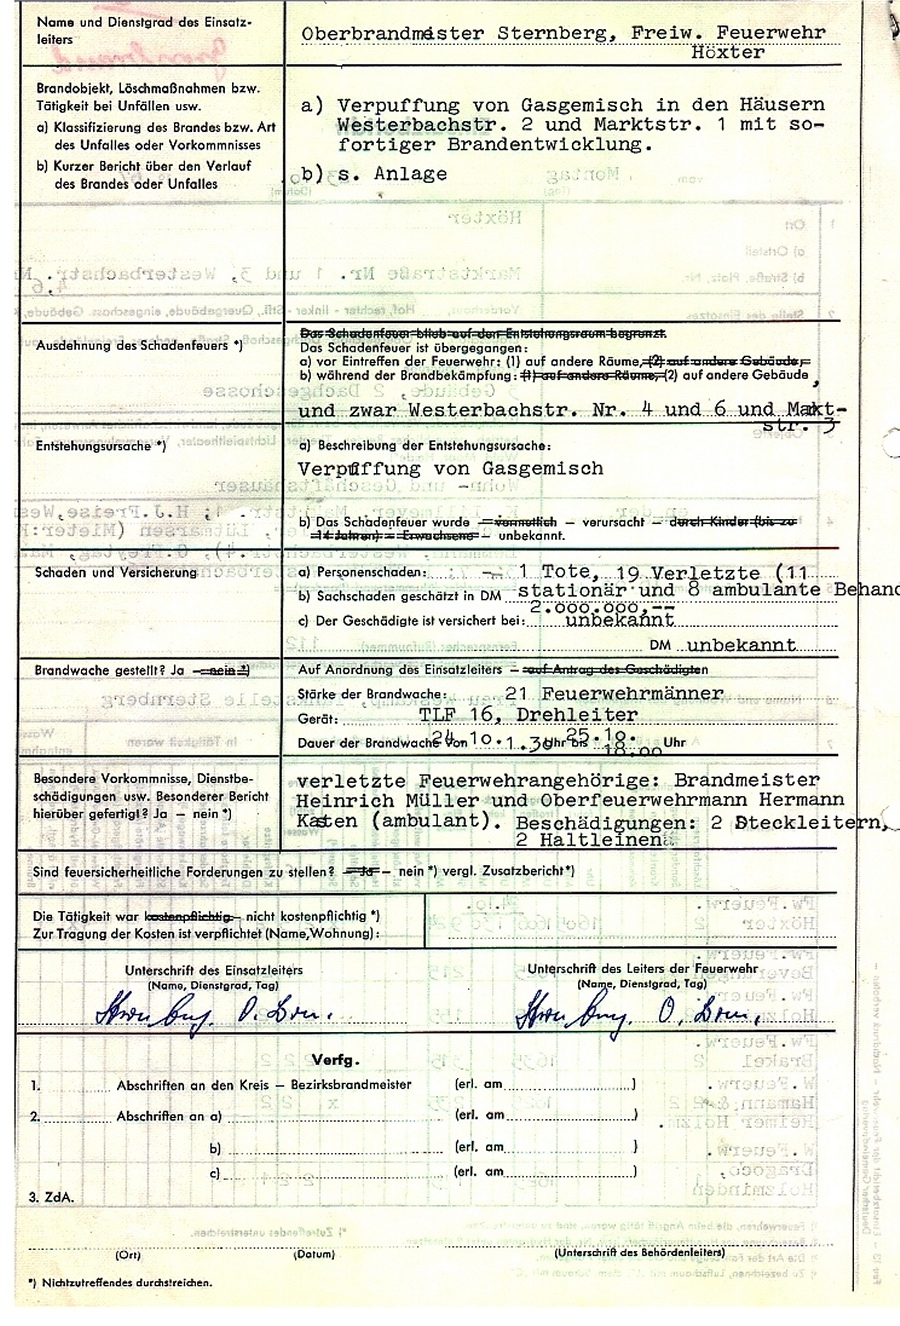 Name und Dienstgrad des Einsatz-
leiters
Oberbrandmeister Sternberg, Freiw. Feuerwehr
Höxter
Brandobjekt, Löschmaßnahmen bzw.
Tätigkeit bei Unfällen usw.
a) Klassifizierung des Brandes bzw. Art
des Unfalles oder Vorkommnisses
b) Kurzer Bericht über den Verlauf
des Brandes oder Unfalles
a) Verpuffung von Gasgemisch in den Häusern
Westerbachstr. 2 und Marktstr. 1 mit so-
fortiger Brandentwicklung.
b) s. Anlage
Ausdehnung des Schadenfeuers *)
Das Schadenfeuer blieb auf den Entstehungsraum begrenzt.
Das Schadenfeuer ist übergegangen:
a) vor Eintreffen der Feuerwehr: (1) auf andere Räume, (2) auf andere Gebäude,
b) während der Brandbekämpfung: (1) auf andere Räume, (2) auf andere Gebäude,
und zwar Westerbachstr. Nr. 4 und 6 und Markt-
str. 3
Entstehungsursache *)
a) Beschreibung der Entstehungsursache:
Verpuffung von Gasgemisch
b) Das Schadenfeuer wurde – vermutlich – verursacht – durch Kinder (bis zu
14 Jahren) – Erwachsene – unbekannt.
Schaden und Versicherung
a) Personenschaden: 1 Tote, 19 Verletzte (11
stationär und 8 ambulante Behand
b) Sachschaden geschätzt in DM 2.000.000,--
c) Der Geschädigte ist versichert bei: unbekannt
DM unbekannt
Brandwache gestellt? Ja – nein *)
Auf Anordnung des Einsatzleiters – auf Antrag des Geschädigten
Stärke der Brandwache: 21 Feuerwehrmänner
Gerät: TLF 16, Drehleiter
Dauer der Brandwache von 24.10. 1.30 Uhr bis 25.10. 18.00 Uhr
Besondere Vorkommnisse, Dienstbe-
schädigungen usw. Besonderer Bericht
hierüber gefertigt? Ja – nein *)
verletzte Feuerwehrangehörige: Brandmeister
Heinrich Müller und Oberfeuerwehrmann Hermann
Kasten (ambulant). Beschädigungen: 2 Steckleitern,
2 Haltleinen.
Sind feuersicherheitliche Forderungen zu stellen? – Ja – nein *) vergl. Zusatzbericht *)
Die Tätigkeit war kostenpflichtig – nicht kostenpflichtig *)
Zur Tragung der Kosten ist verpflichtet (Name, Wohnung):
Unterschrift des Einsatzleiters
(Name, Dienstgrad, Tag)
Unterschrift des Leiters der Feuerwehr
(Name, Dienstgrad, Tag)
Verfg.
1. Abschriften an den Kreis – Bezirksbrandmeister (erl. am )
2. Abschriften an a) (erl. am )
b) (erl. am )
c) (erl. am )
3. ZdA.
(Ort) (Datum) (Unterschrift des Behördenleiters)
*) Nichtzutreffendes durchstreichen.